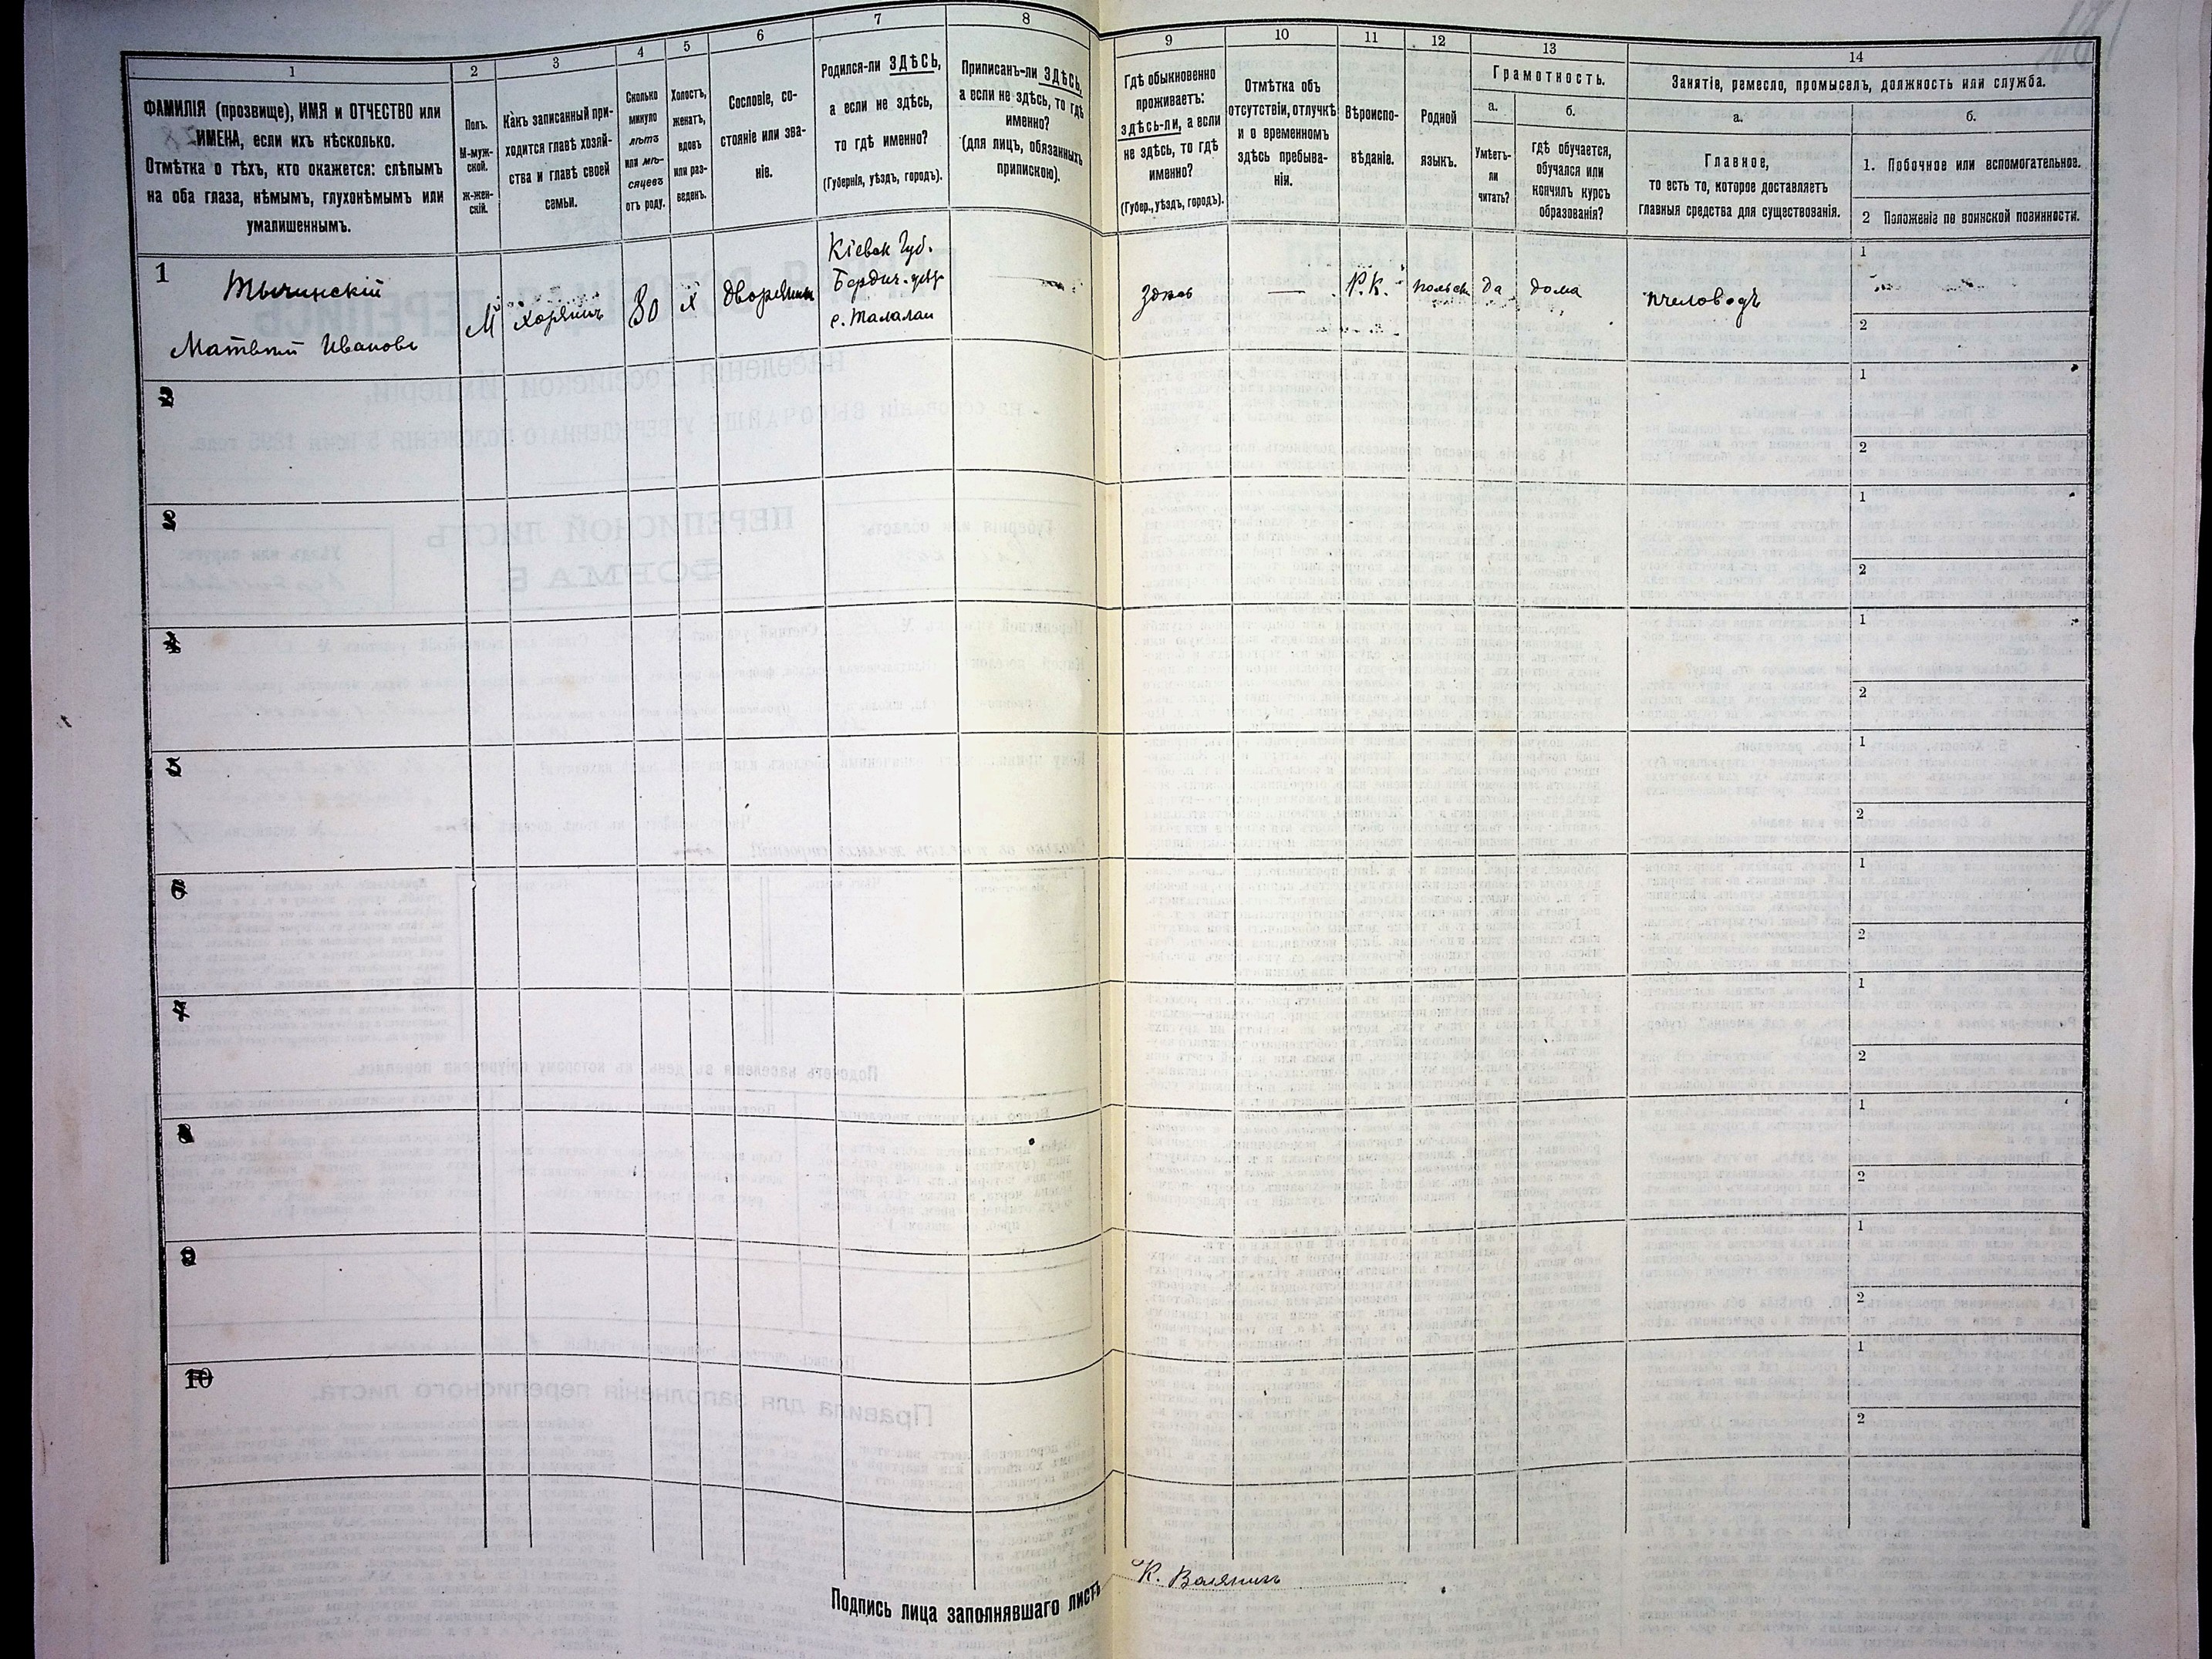 1
ФАМИЛІЯ (прозвище), ИМЯ и ОТЧЕСТВО или
ИМЕНА, если ихъ нѣсколько.
Отмѣтка о тѣхъ, кто окажется: слѣпымъ
на оба глаза, нѣмымъ, глухонѣмымъ или
умалишеннымъ.
2
Полъ.
М-муж-
ской.
ж-жен-
скій.
3
Какъ записанный при-
ходится главѣ хозяй-
ства и главѣ своей
семьи.
4
Сколько
минуло
лѣтъ
или мѣ-
сяцевъ
отъ роду.
5
Холостъ,
женатъ,
вдовъ
или раз-
веденъ.
6
Сословіе, со-
стояніе или зва-
ніе.
7
Родился-ли ЗДѢСЬ,
а если не здѣсь,
то гдѣ именно?
(Губернія, уѣздъ, городъ).
8
Приписанъ-ли ЗДѢСЬ,
а если не здѣсь, то гдѣ
именно?
(для лицъ, обязанныхъ
припискою).
9
Гдѣ обыкновенно
проживаетъ:
здѣсь-ли, а если
не здѣсь, то гдѣ
именно?
(Губер., уѣздъ, городъ).
10
Отмѣтка объ
отсутствіи, отлучкѣ
и о временномъ
здѣсь пребыва-
ніи.
11
Вѣроиспо-
вѣданіе.
12
Родной
языкъ.
13
Грамотность.
а.
Умѣетъ-
ли
читать?
б.
гдѣ обучается,
обучался или
кончилъ курсъ
образованія?
14
Занятіе, ремесло, промыселъ, должность или служба.
а.
Главное,
то есть то, которое доставляетъ
главныя средства для существованія.
б.
1. Побочное или вспомогательное.
2 Положеніе по воинской повинности.
1
Тычинскій
Матвѣй Ивановъ
М
хозяинъ
30
х
дворянинъ
Кіевск Губ.
Бердич. уѣз
с. Талалаи
здѣсь
Р.К.
польск
да
дома
пчеловодъ
1
2
3
1
2
2
1
2
4
1
2
5
1
2
6
1
2
7
1
2
8
1
2
9
1
2
10
1
2
Подпись лица заполнявшаго листъ